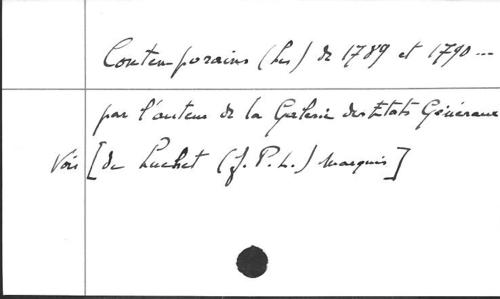 Contemporains (Les) de 1789 et 1790 ...
par l'auteur de la Galerie des Etats Généraux
Voir [de Luchet (J. P. L.) marquis]